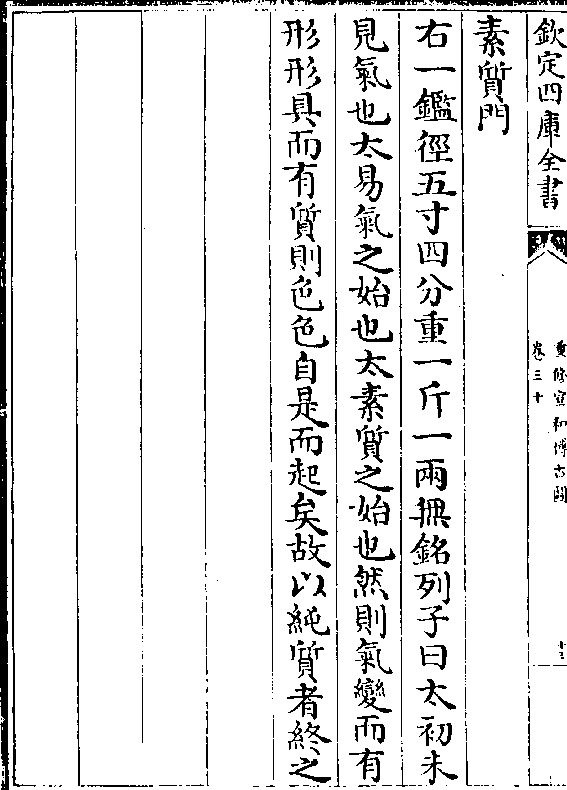 欽定四庫全書
重修宣和博古圖
卷三十
十三
素質門
右一鑑徑五寸四分重一斤一兩無銘列子曰太初未
見氣也太易氣之始也太素質之始也然則氣變而有
形形具而有質則色色自是而起矣故以純質者終之